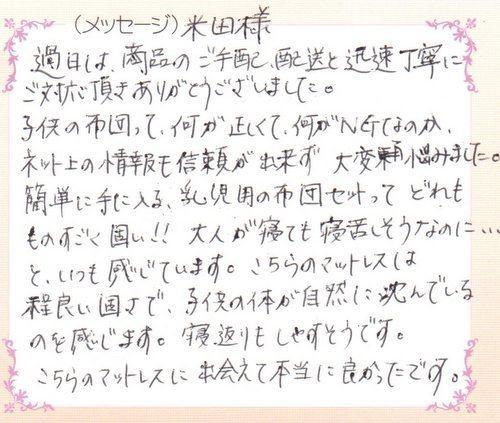 (メッセージ) 米田様
過日は、商品のご手配、配送と迅速丁寧に
ご対応頂きありがとうございました。
子供の布団って、何が正しくて、何がNGなのか、
ネット上の情報も信頼が出来ず 大変悩みました。
簡単に手に入る、乳児用の布団セットって どれも
ものすごく固い!! 大人が寝ても寝苦しそうなのに…
と、いつも感じています。こちらのマットレスは
程良い固さで、子供の体が自然に沈んでいる
のを感じます。寝返りもしやすそうです。
こちらのマットレスに出会えて本当に良かったです。